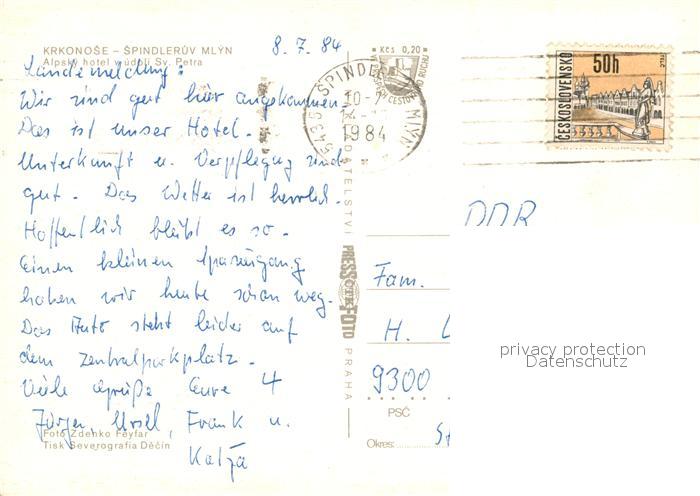 KRKONOŠE – ŠPINDLERŮV MLÝN
Alpský hotel v údolí Sv. Petra
8.7.84
Landemeldung:
Wir sind gut hier angekommen.
Das ist unser Hotel.
Unterkunft u. Verpflegung sind
gut. Das Wetter ist herrlich.
Hoffentlich bleibt es so.
Einen kleinen Spaziergang
haben wir heute schon weg.
Das Auto steht leider auf
dem Zentralparkplatz.
Viele Grüße Eure 4
Jürgen, Ursel, Frank u.
Katja
Foto Zdenko Feyfar
Tisk Severografia Děčín
Kčs 0,20
ŠPINDLERŮV MLÝN
1984
PRESSFOTO
PRAHA
ČESKOSLOVENSKO
50h
DDR
Fam.
H. L
9300
PSČ
Okres:
privacy protection
Datenschutz